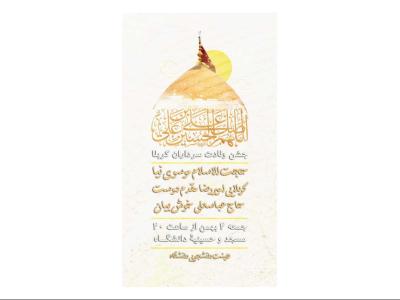 اللهم صل علی علی بن الحسین
جشن ولادت سرداران کربلا
حجت الاسلام موسوی نیا
کربلایی امیررضا مقدم دوست
حاج عباسعلی خوش بیان
جمعه ۲ بهمن از ساعت ۲۰
مسجد و حسینیۀ دانشگاه
هیئت دانشجویی دانشگاه